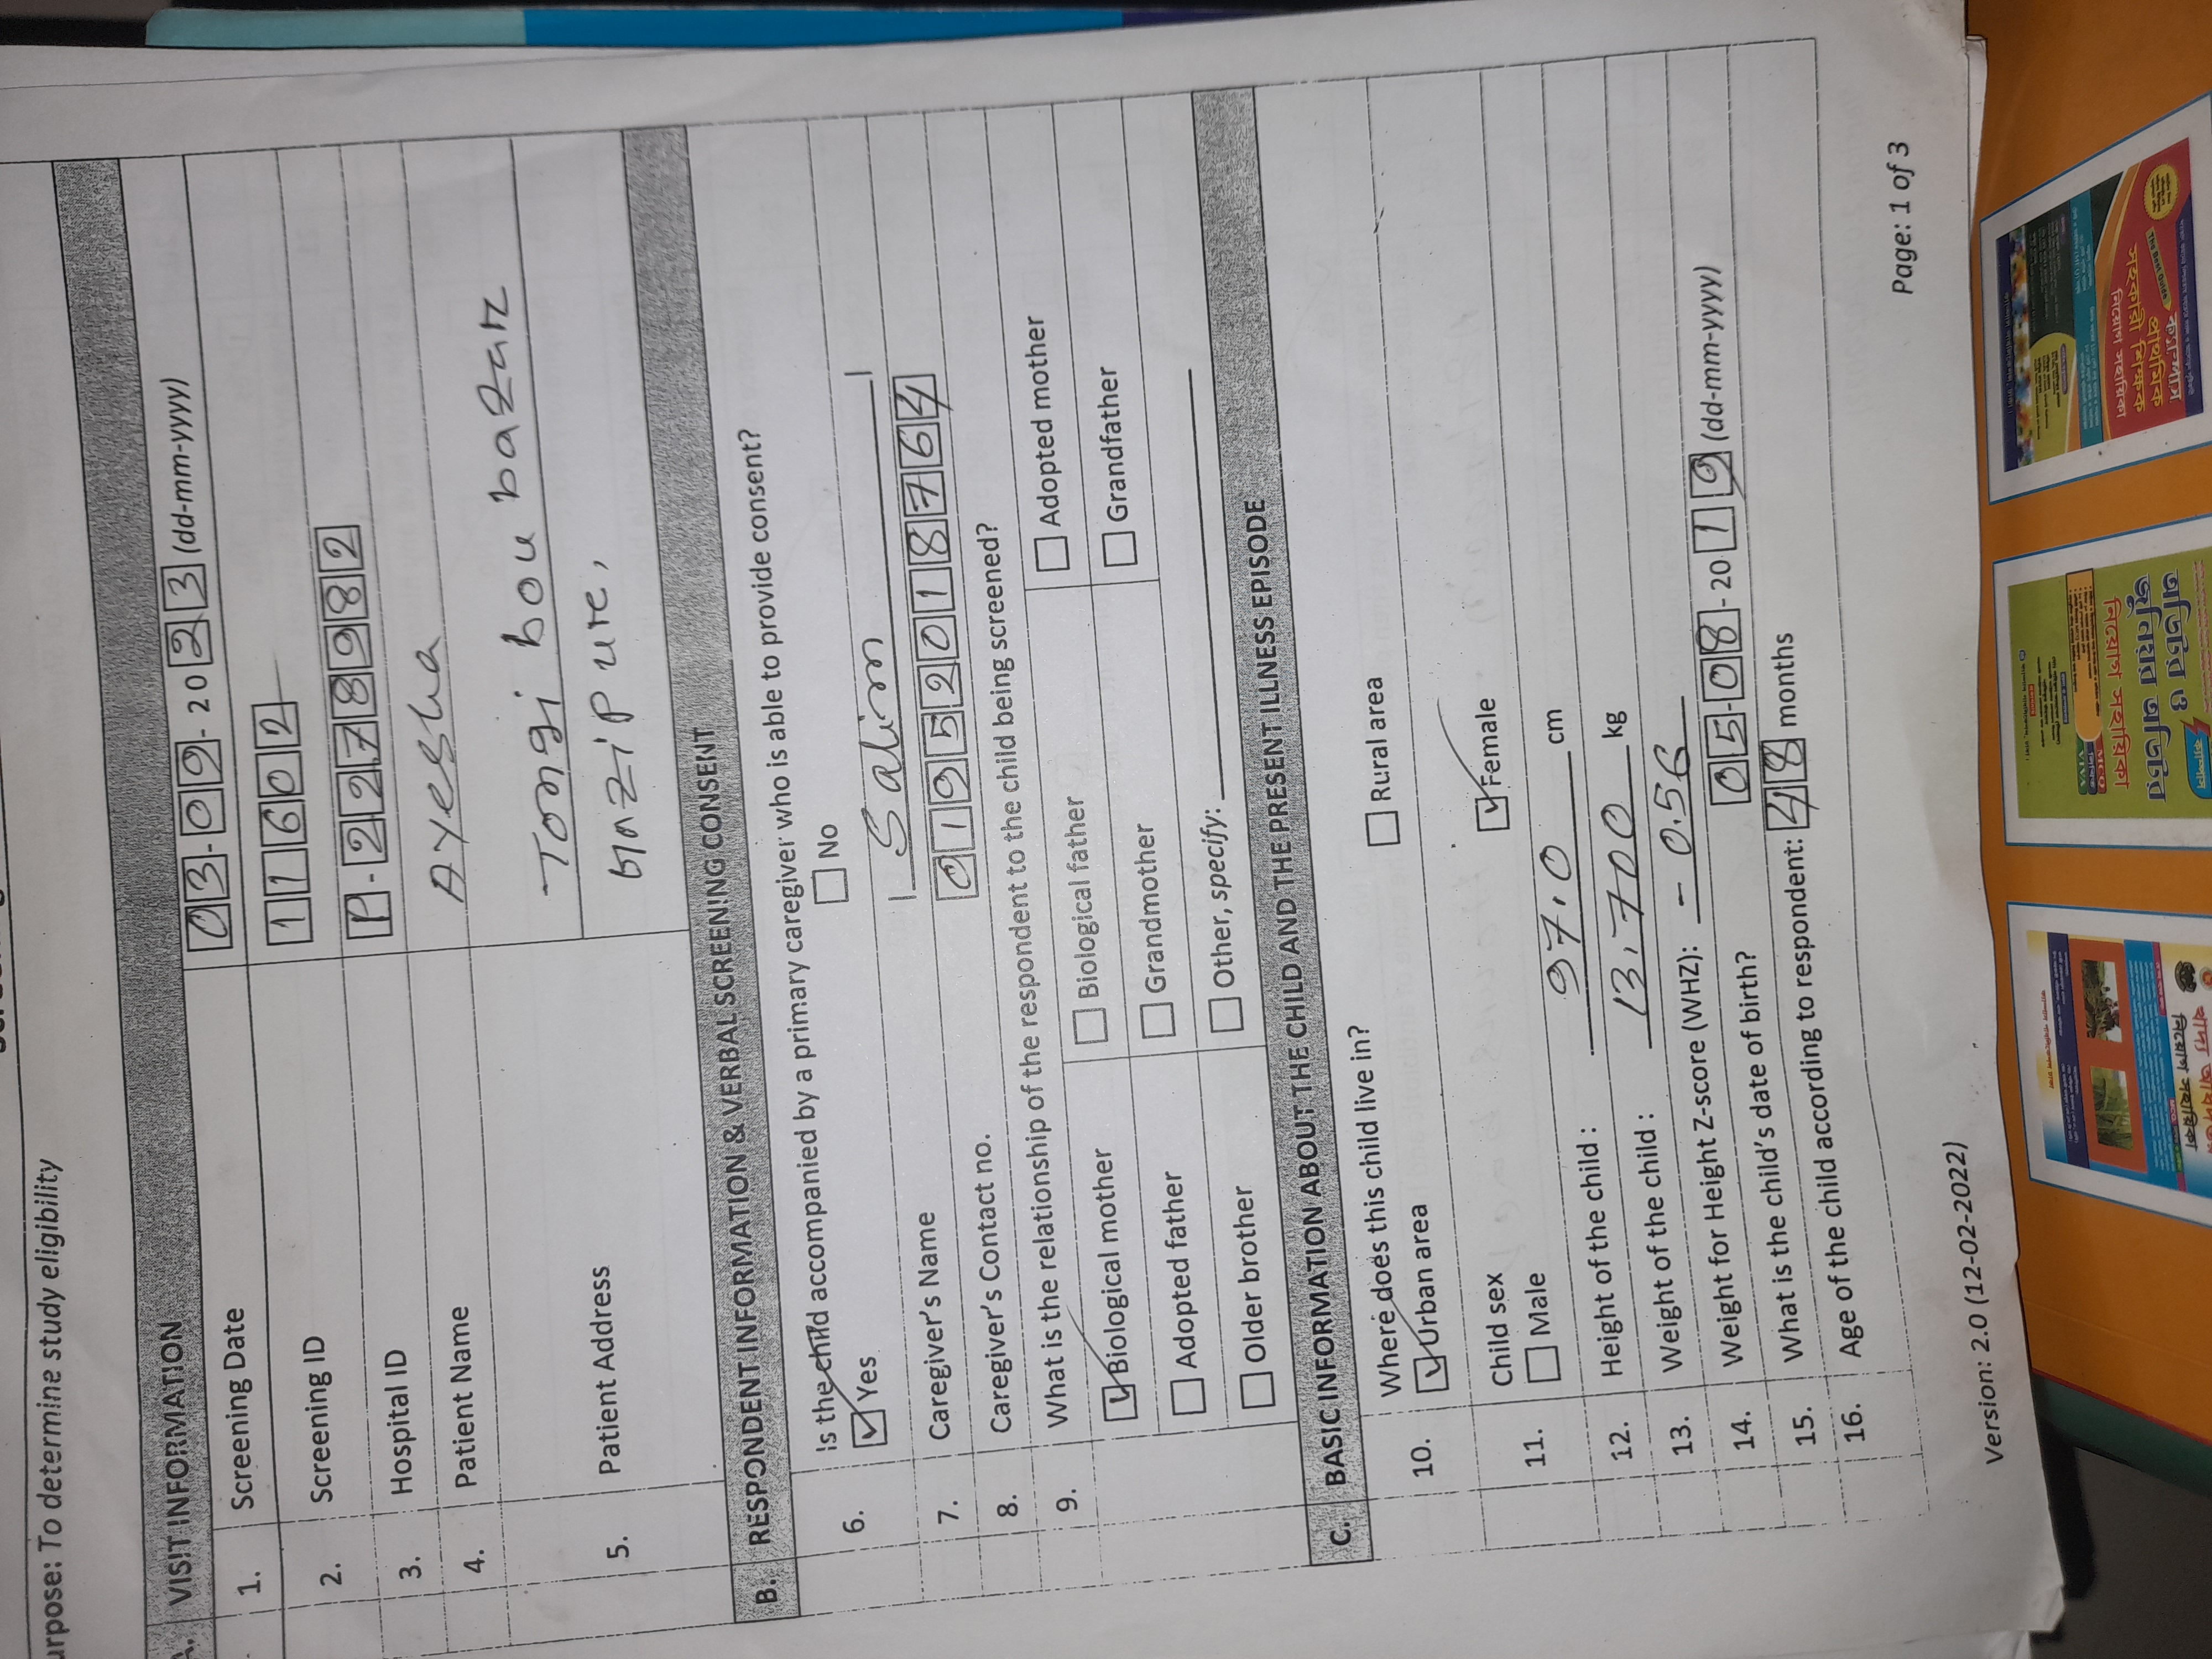 Purpose: To determine study eligibility
A. VISIT INFORMATION
1. Screening Date 03-09-2023 (dd-mm-yyyy)
2. Screening ID 11602
3. Hospital ID P-2278982
4. Patient Name Ayesha
5. Patient Address Tongi bou bazar
Gazipur,
B. RESPONDENT INFORMATION & VERBAL SCREENING CONSENT
6. Is the child accompanied by a primary caregiver who is able to provide consent?
Yes No
7. Caregiver's Name Salim
8. Caregiver's Contact no. 01952018764
9. What is the relationship of the respondent to the child being screened?
Biological mother Biological father Adopted mother
Adopted father Grandmother Grandfather
Older brother Other, specify:
C. BASIC INFORMATION ABOUT THE CHILD AND THE PRESENT ILLNESS EPISODE
10. Where does this child live in?
Urban area Rural area
11. Child sex
Male Female
12. Height of the child : 97.0 cm
13. Weight of the child : 13.700 kg
14. Weight for Height Z-score (WHZ): - 0.56
15. What is the child's date of birth? 05-08-2019 (dd-mm-yyyy)
16. Age of the child according to respondent: 48 months
Page: 1 of 3
Version: 2.0 (12-02-2022)
অডিটর ও
জুনিয়র অডিটর
নিয়োগ সহায়িকা
MCQ
VIVA
নিয়োগ সহায়িকা